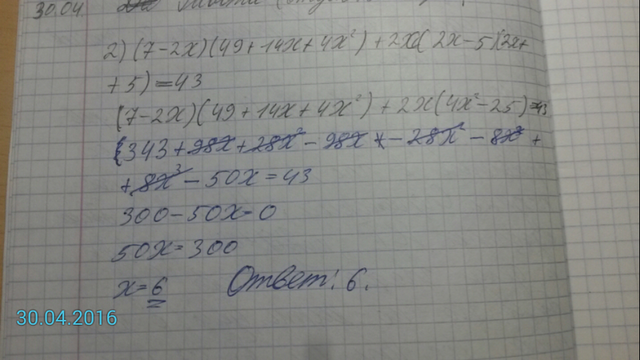 30.04
2) (7-2x)(49+14x+4x²)+2x(2x-5)(2x+
+5)=43
(7-2x)(49+14x+4x²)+2x(4x²-25)=43
343+98x+28x²-98x-28x²-8x³+
+8x³-50x=43
300-50x=0
50x=300
x=6 Ответ: 6.
30.04.2016